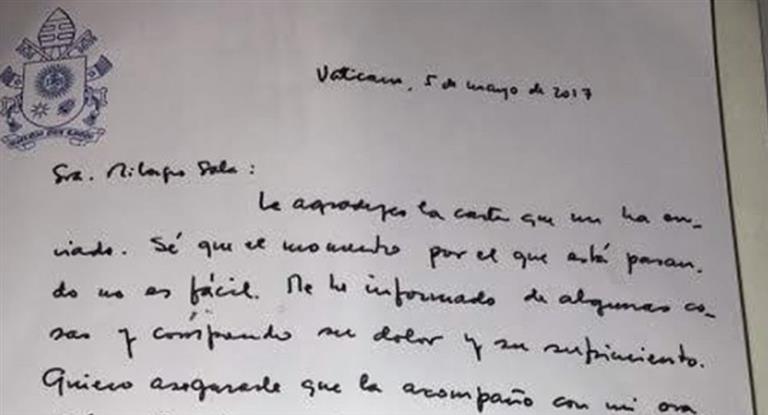 Vaticano, 5 de mayo de 2017
Sra. Milagro Sala:
Le agradezco la carta que me ha en-
viado. Sé que el momento por el que está pasan-
do no es fácil. Me he informado de algunas co-
sas y comprendo su dolor y su sufrimiento.
Quiero asegurarle que la acompaño con mi ora